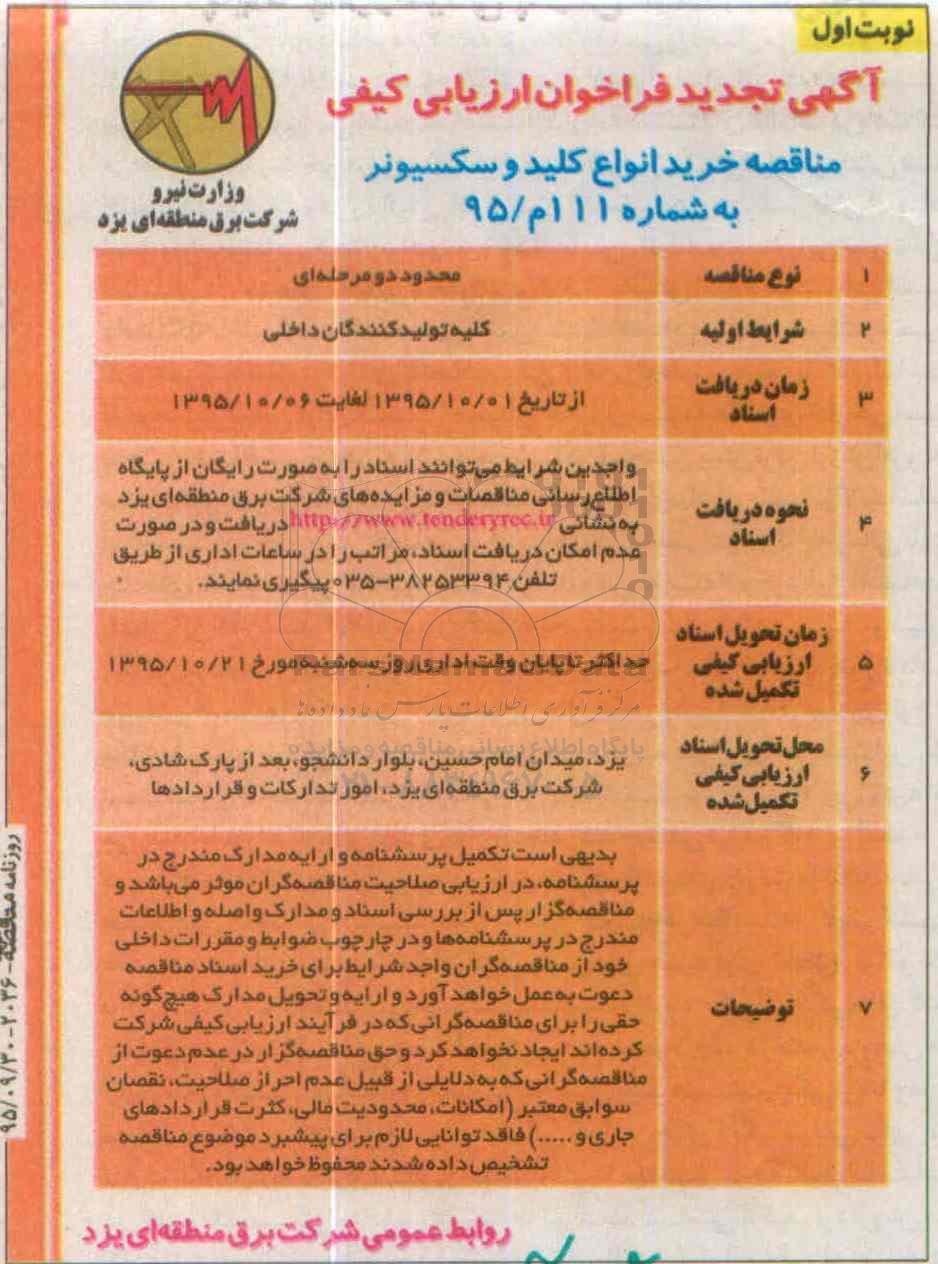 نوبت اول
آگهی تجدید فراخوان ارزیابی کیفی
مناقصه خرید انواع کلید و سکسیونر
به شماره ۱۱۱م/۹۵
وزارت نیرو
شرکت برق منطقه‌ای یزد
۱ نوع مناقصه محدود دو مرحله‌ای
۲ شرایط اولیه کلیه تولیدکنندگان داخلی
۳ زمان دریافت اسناد از تاریخ ۱۳۹۵/۱۰/۰۱ لغایت ۱۳۹۵/۱۰/۰۶
۴ نحوه دریافت اسناد
واجدین شرایط می‌توانند اسناد را به صورت رایگان از پایگاه
اطلاع‌رسانی مناقصات و مزایده‌های شرکت برق منطقه‌ای یزد
به نشانی http://www.tenderyrec.ir دریافت و در صورت
عدم امکان دریافت اسناد، مراتب را در ساعات اداری از طریق
تلفن ۳۸۲۵۳۳۹۴-۰۳۵ پیگیری نمایند.
۵ زمان تحویل اسناد ارزیابی کیفی تکمیل شده
حداکثر تا پایان وقت اداری روز سه‌شنبه مورخ ۱۳۹۵/۱۰/۲۱
۶ محل تحویل اسناد ارزیابی کیفی تکمیل شده
یزد، میدان امام حسین، بلوار دانشجو، بعد از پارک شادی،
شرکت برق منطقه‌ای یزد، امور تدارکات و قراردادها
۷ توضیحات
بدیهی است تکمیل پرسشنامه و ارایه مدارک مندرج در
پرسشنامه، در ارزیابی صلاحیت مناقصه‌گران موثر می‌باشد و
مناقصه‌گزار پس از بررسی اسناد و مدارک واصله و اطلاعات
مندرج در پرسشنامه‌ها و در چارچوب ضوابط و مقررات داخلی
خود از مناقصه‌گران واجد شرایط برای خرید اسناد مناقصه
دعوت به عمل خواهد آورد و ارایه و تحویل مدارک هیچ‌گونه
حقی را برای مناقصه‌گرانی که در فرآیند ارزیابی کیفی شرکت
کرده‌اند ایجاد نخواهد کرد و حق مناقصه‌گزار در عدم دعوت از
مناقصه‌گرانی که به دلایلی از قبیل عدم احراز صلاحیت، نقصان
سوابق معتبر (امکانات، محدودیت مالی، کثرت قراردادهای
جاری و .....) فاقد توانایی لازم برای پیشبرد موضوع مناقصه
تشخیص داده شدند محفوظ خواهد بود.
روابط عمومی شرکت برق منطقه‌ای یزد
روزنامه مناقصه - ۲۰۳۶ - ۹۵/۰۹/۳۰
ParsNamadData
مرکز فرآوری اطلاعات پارس نماد داده‌ها
پایگاه اطلاع رسانی مناقصه و مزایده